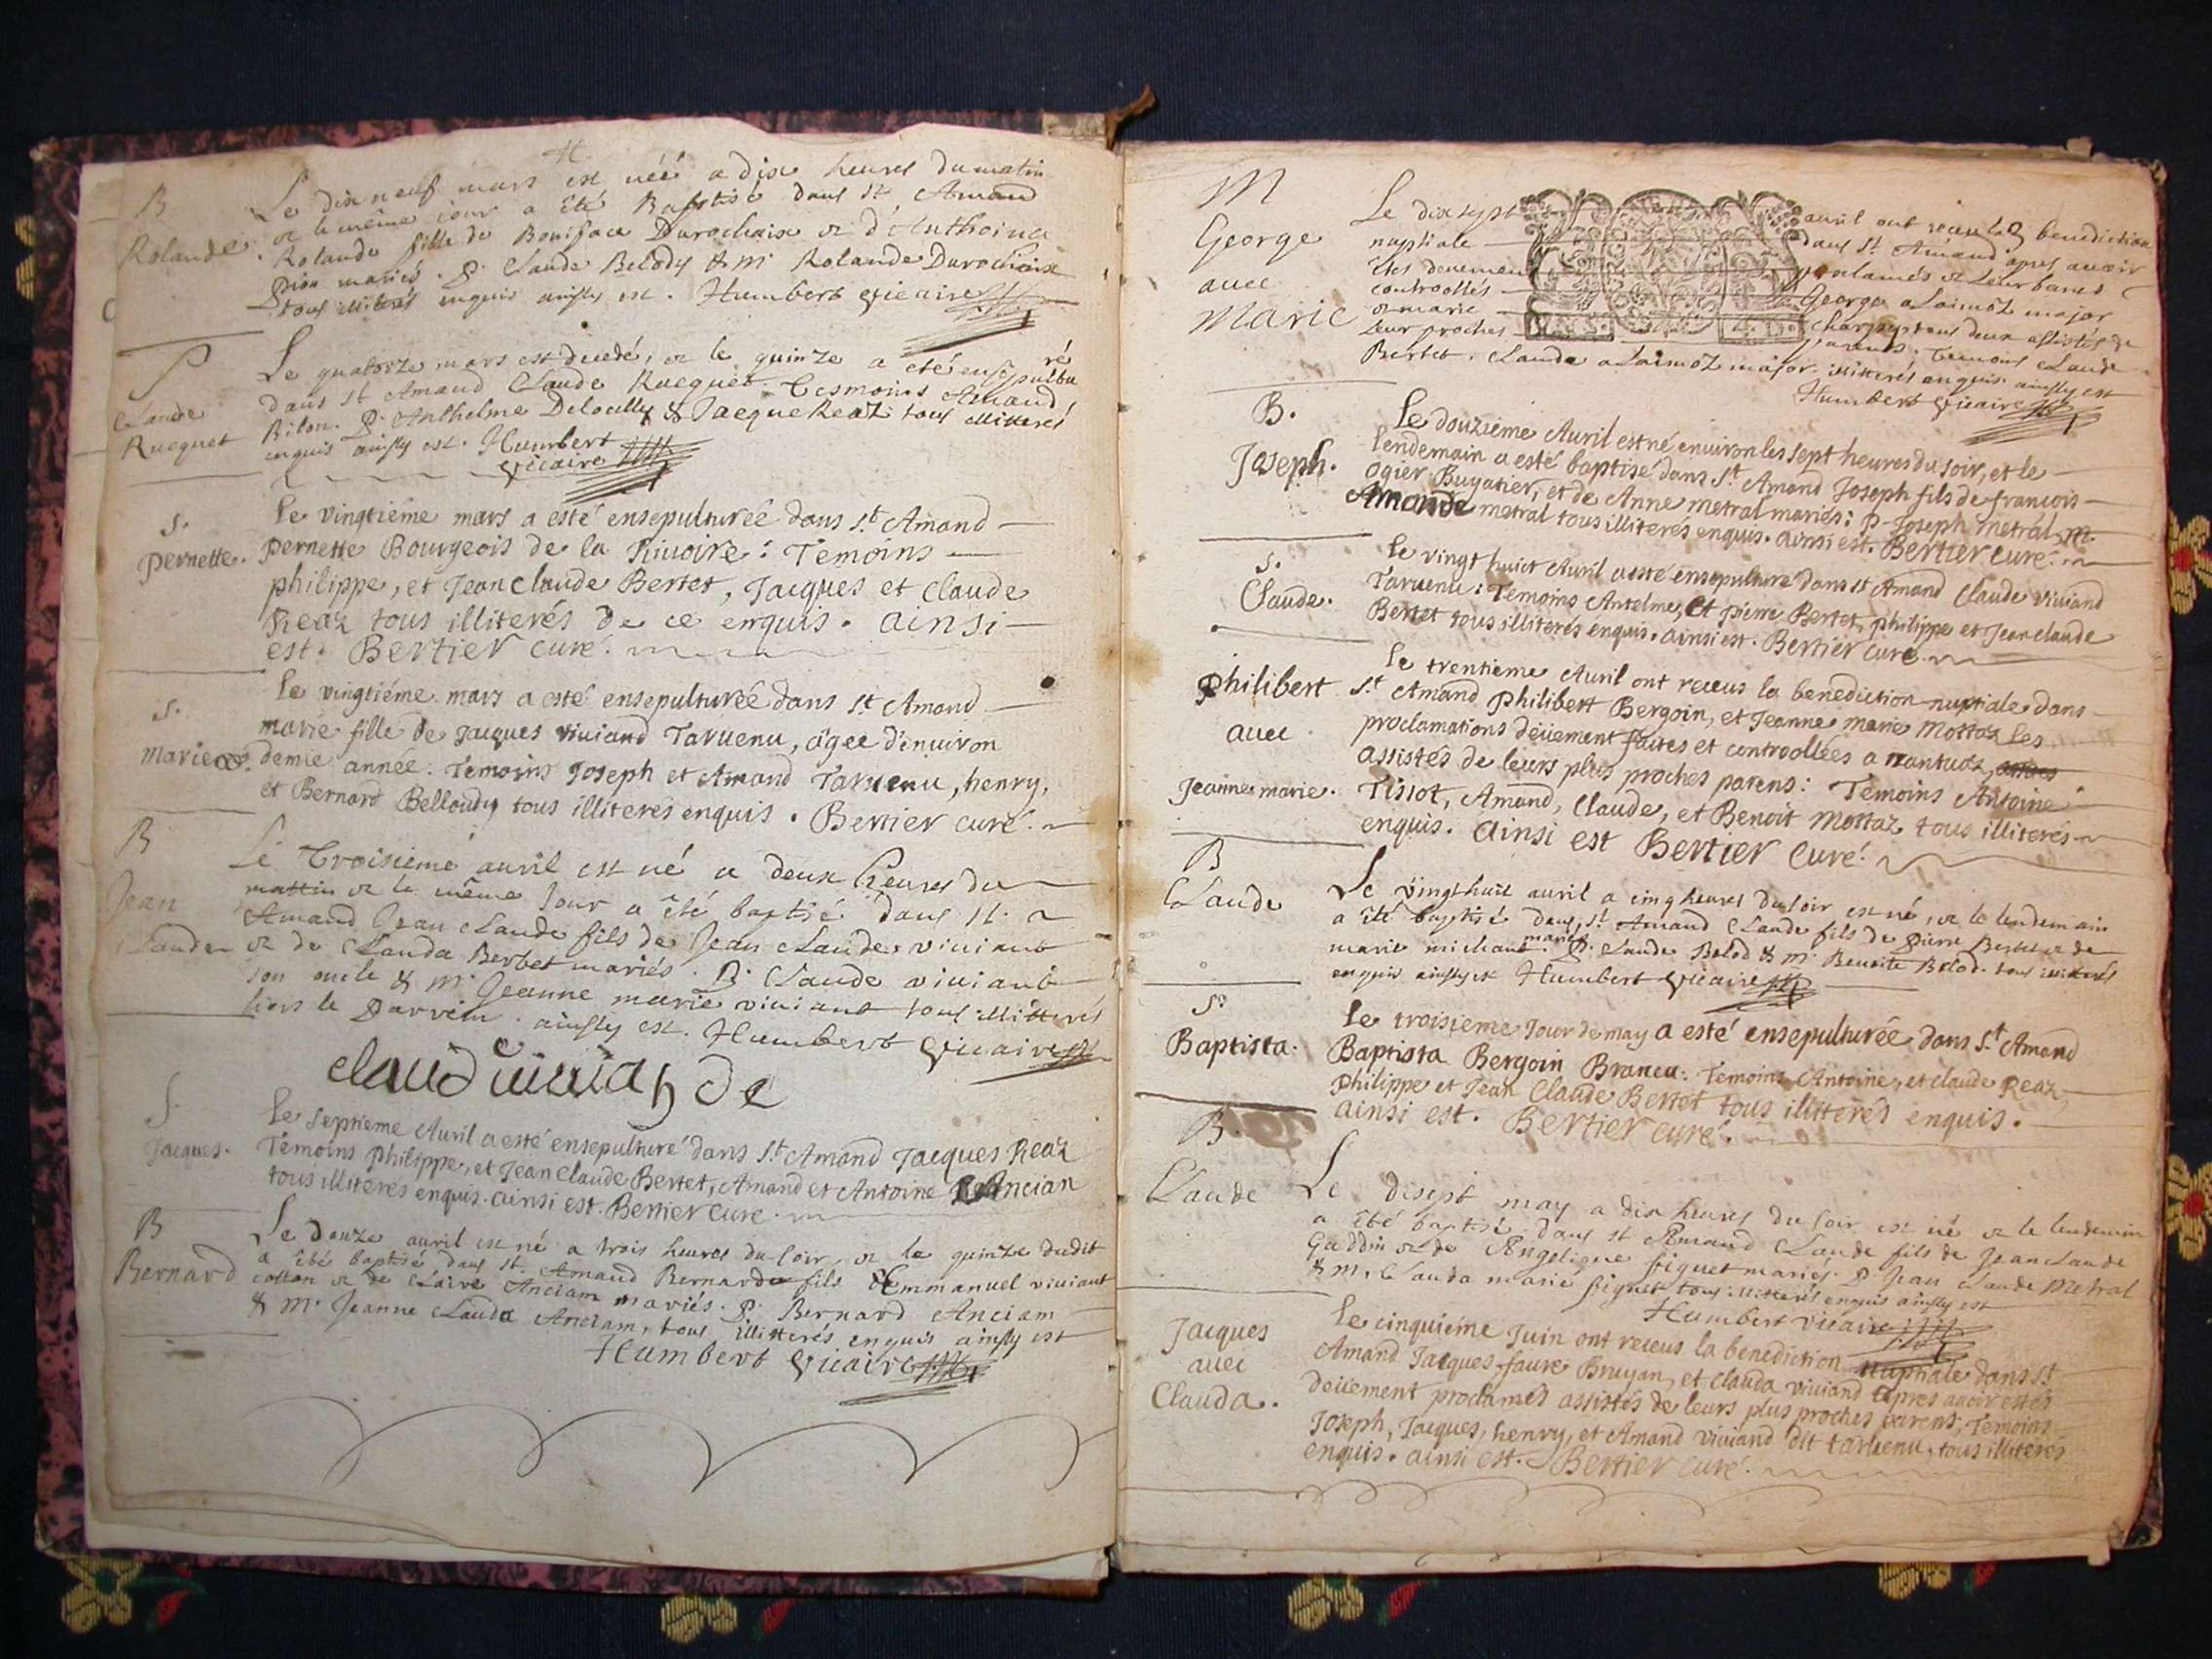 B
Rolande.
Le dix neuf mars est néé a dix heures du matin
et le même jour a été Baptisé dans St. Amand
Rolande fille de Boniface Durochaix et d'Anthoina
mariés. P. Claude Belody & Mr Rolande Durochaix
tous illiterés enquis ainsy est. Humbert vicaire
S
Claude
Rucquet
Le quatorze mars est decedé, et le quinze a été ensepulturé
dans St Amand Claude Rucquet. Tesmoins Amand
Bilon. P. Anthelme Delocully & Jacque Reaz tous illiterés
enquis ainsy est. Humbert
vicaire
S.
Pernette.
Le vingtiéme mars a esté ensepulturéé dans S.t Amand
Pernette Bourgeois de la Rivoire: Temoins
philippe, et Jean claude Bertet, Jacques et Claude
Reaz tous illiterés de ce enquis. ainsi
est. Bertier curé.
S.
Marie
Le vingtiéme mars a esté ensepulturéé dans S.t Amand
marie fille de Jacques viuiand Taruenu, ágee d'enuiron
demie année. Temoins Joseph et Amand Taruenu, henry,
et Bernard Belloudy tous illiterés enquis. Bertier curé.
B
Jean
Claude
Le Troisieme auril est né a deux heures du
mattin et le même Jour a été baptisé dans St.
Amand Jean Claude fils de Jean Claude viuiant
et de Clauda Bertet mariés. P. Claude viuiant
son oncle & Mr Jeanne marie viuiant tous illiterés
hors le Parrein. ainsy est. Humbert vicaire
claud viuiande
S.
Jacques.
Le septieme Auril a esté ensepulturé dans S.t Amand Jacques Reaz
Temoins philippe, et Jean claude Bertet, Amand et Antoine Ancian
tous illiterés enquis. ainsi est. Bertier curé.
B
Bernard
Le douze auril est né a trois heures du soir, et le quinze dudit
a été baptisé dans St. Amand Bernard fils d'Emmanuel viuiant
collon et de Claire Anciam mariés. P. Bernard Anciam
& Mr. Jeanne Clauda Anciam, tous illitterés enquis ainsy est
Humbert vicaire
M
George
auec
Marie
Le dix sept auril ont receu la benediction
nuptiale dans St. Amand apres auoir
étés deuement proclamés et leur bancs
controollés George aLaimoz major
et marie Charpy tous deux assistés de
leur proches parents. Temoins Claude
Bertet, Claude aLaimoz major illitterés enquis ainsy est
Humbert vicaire
B.
Joseph.
Le douzieme Auril est né enuiron les sept heures du soir, et le
lendemain a esté baptisé dans S.t Amand Joseph fils de francois
ogier Buyatier, et de Anne metral mariés: P. Joseph metral, M.
Amande metral tous illiterés enquis. ainsi est. Bertier curé.
S.
Claude.
Le vingt huict Auril a esté ensepulturé dans S.t Amand Claude viuiand
Taruenu: Temoins Antelme, et pierre Bertet, philippe et Jean claude
Bertet tous illiterés enquis. ainsi est. Bertier curé.
philibert
auec
Jeanne marie.
Le trentieme Auril ont receus la benediction nuptiale dans
S.t Amand philibert Bergoin, et Jeanne marie Mottaz les
proclamations deüement faites et controollées a nantuaz,
assistés de leurs plus proches parens: Temoins Antoine
Tissot, Amand, Claude, et Benoit mottaz tous illiterés
enquis. ainsi est Bertier curé.
B
Claude
Le vingt huit auril a cinq heures du soir est né, et le lendemain
a été baptisé dans St. Amand Claude fils de Pierre Bertet et de
marie michaut mariés P. Claude Belod & Mr Benoite Belod. tous illitterés
enquis ainsy est Humbert vicaire
S.
Baptista.
Le troisieme Jour de may a esté ensepulturéé dans S.t Amand
Baptista Bergoin Braneu: Temoins Antoine, et claude Reaz
philippe et Jean Claude Bertet tous illitterés enquis.
ainsi est. Bertier curé.
B.
Claude
Le disept may a dix heures du soir est né et le lendemain
a été baptisé dans St Amand Claude fils de Jean Claude
Gaddin et de Angelique figuet mariés. P. Jean Claude Metral
& M. Clauda marie figuet tous illitterés enquis ainsy est
Humbert vicaire
Jacques
auec
Clauda.
Le cinquieme Juin ont receus la benediction nuptiale dans S.t
Amand Jacques faure Bruyan, et clauda viuiand apres auoir estés
deüement proclamés assistés de leurs plus proches parens, Temoins
Joseph, Jacques, henry, et Amand viuiand dit taruenu, tous illiterés
enquis. ainsi est. Bertier curé.